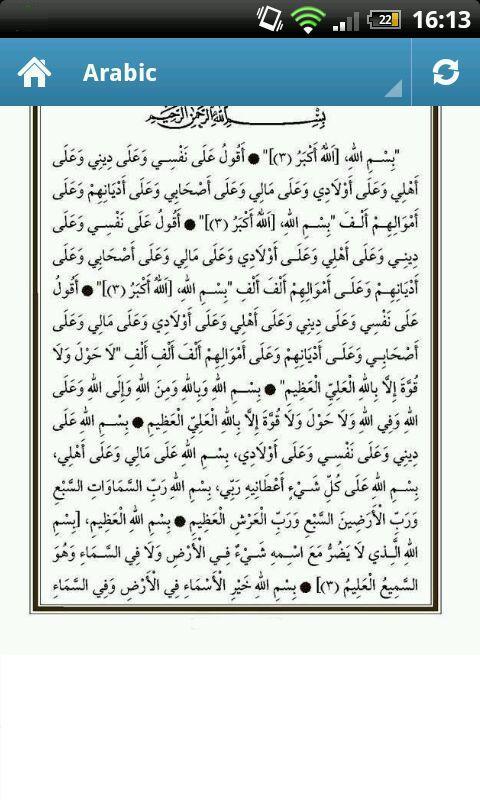 22
16:13
Arabic
بِسْمِ اللهِ الرَّحْمٰنِ الرَّحِيْمِ
"بِسْمِ اللهِ، [اَللهُ أَكْبَرُ (٣)]" ● أَقُولُ عَلَى نَفْسِي وَعَلَى دِينِي وَعَلَى
أَهْلِي وَعَلَى أَوْلَادِي وَعَلَى مَالِي وَعَلَى أَصْحَابِي وَعَلَى أَدْيَانِهِمْ وَعَلَى
أَمْوَالِهِمْ أَلْفَ "بِسْمِ اللهِ، [اَللهُ أَكْبَرُ (٣)]" ● أَقُولُ عَلَى نَفْسِي وَعَلَى
دِينِي وَعَلَى أَهْلِي وَعَلَى أَوْلَادِي وَعَلَى مَالِي وَعَلَى أَصْحَابِي وَعَلَى
أَدْيَانِهِمْ وَعَلَى أَمْوَالِهِمْ أَلْفَ أَلْفِ "بِسْمِ اللهِ، [اَللهُ أَكْبَرُ (٣)]" ● أَقُولُ
عَلَى نَفْسِي وَعَلَى دِينِي وَعَلَى أَهْلِي وَعَلَى أَوْلَادِي وَعَلَى مَالِي وَعَلَى
أَصْحَابِي وَعَلَى أَدْيَانِهِمْ وَعَلَى أَمْوَالِهِمْ أَلْفَ أَلْفِ أَلْفِ "لَا حَوْلَ وَلَا
قُوَّةَ إِلَّا بِاللهِ الْعَلِيِّ الْعَظِيمِ" ● بِسْمِ اللهِ وَبِاللهِ وَمِنَ اللهِ وَإِلَى اللهِ وَعَلَى
اللهِ وَفِي اللهِ وَلَا حَوْلَ وَلَا قُوَّةَ إِلَّا بِاللهِ الْعَلِيِّ الْعَظِيمِ ● بِسْمِ اللهِ عَلَى
دِينِي وَعَلَى نَفْسِي وَعَلَى أَوْلَادِي، بِسْمِ اللهِ عَلَى مَالِي وَعَلَى أَهْلِي،
بِسْمِ اللهِ عَلَى كُلِّ شَيْءٍ أَعْطَانِيهِ رَبِّي، بِسْمِ اللهِ رَبِّ السَّمَاوَاتِ السَّبْعِ
وَرَبِّ الْأَرَضِينَ السَّبْعِ وَرَبِّ الْعَرْشِ الْعَظِيمِ ● بِسْمِ اللهِ الْعَظِيمِ، [بِسْمِ
اللهِ الَّذِي لَا يَضُرُّ مَعَ اسْمِهِ شَيْءٌ فِي الْأَرْضِ وَلَا فِي السَّمَاءِ وَهُوَ
السَّمِيعُ الْعَلِيمُ (٣)] ● بِسْمِ اللهِ خَيْرِ الْأَسْمَاءِ فِي الْأَرْضِ وَفِي السَّمَاءِ